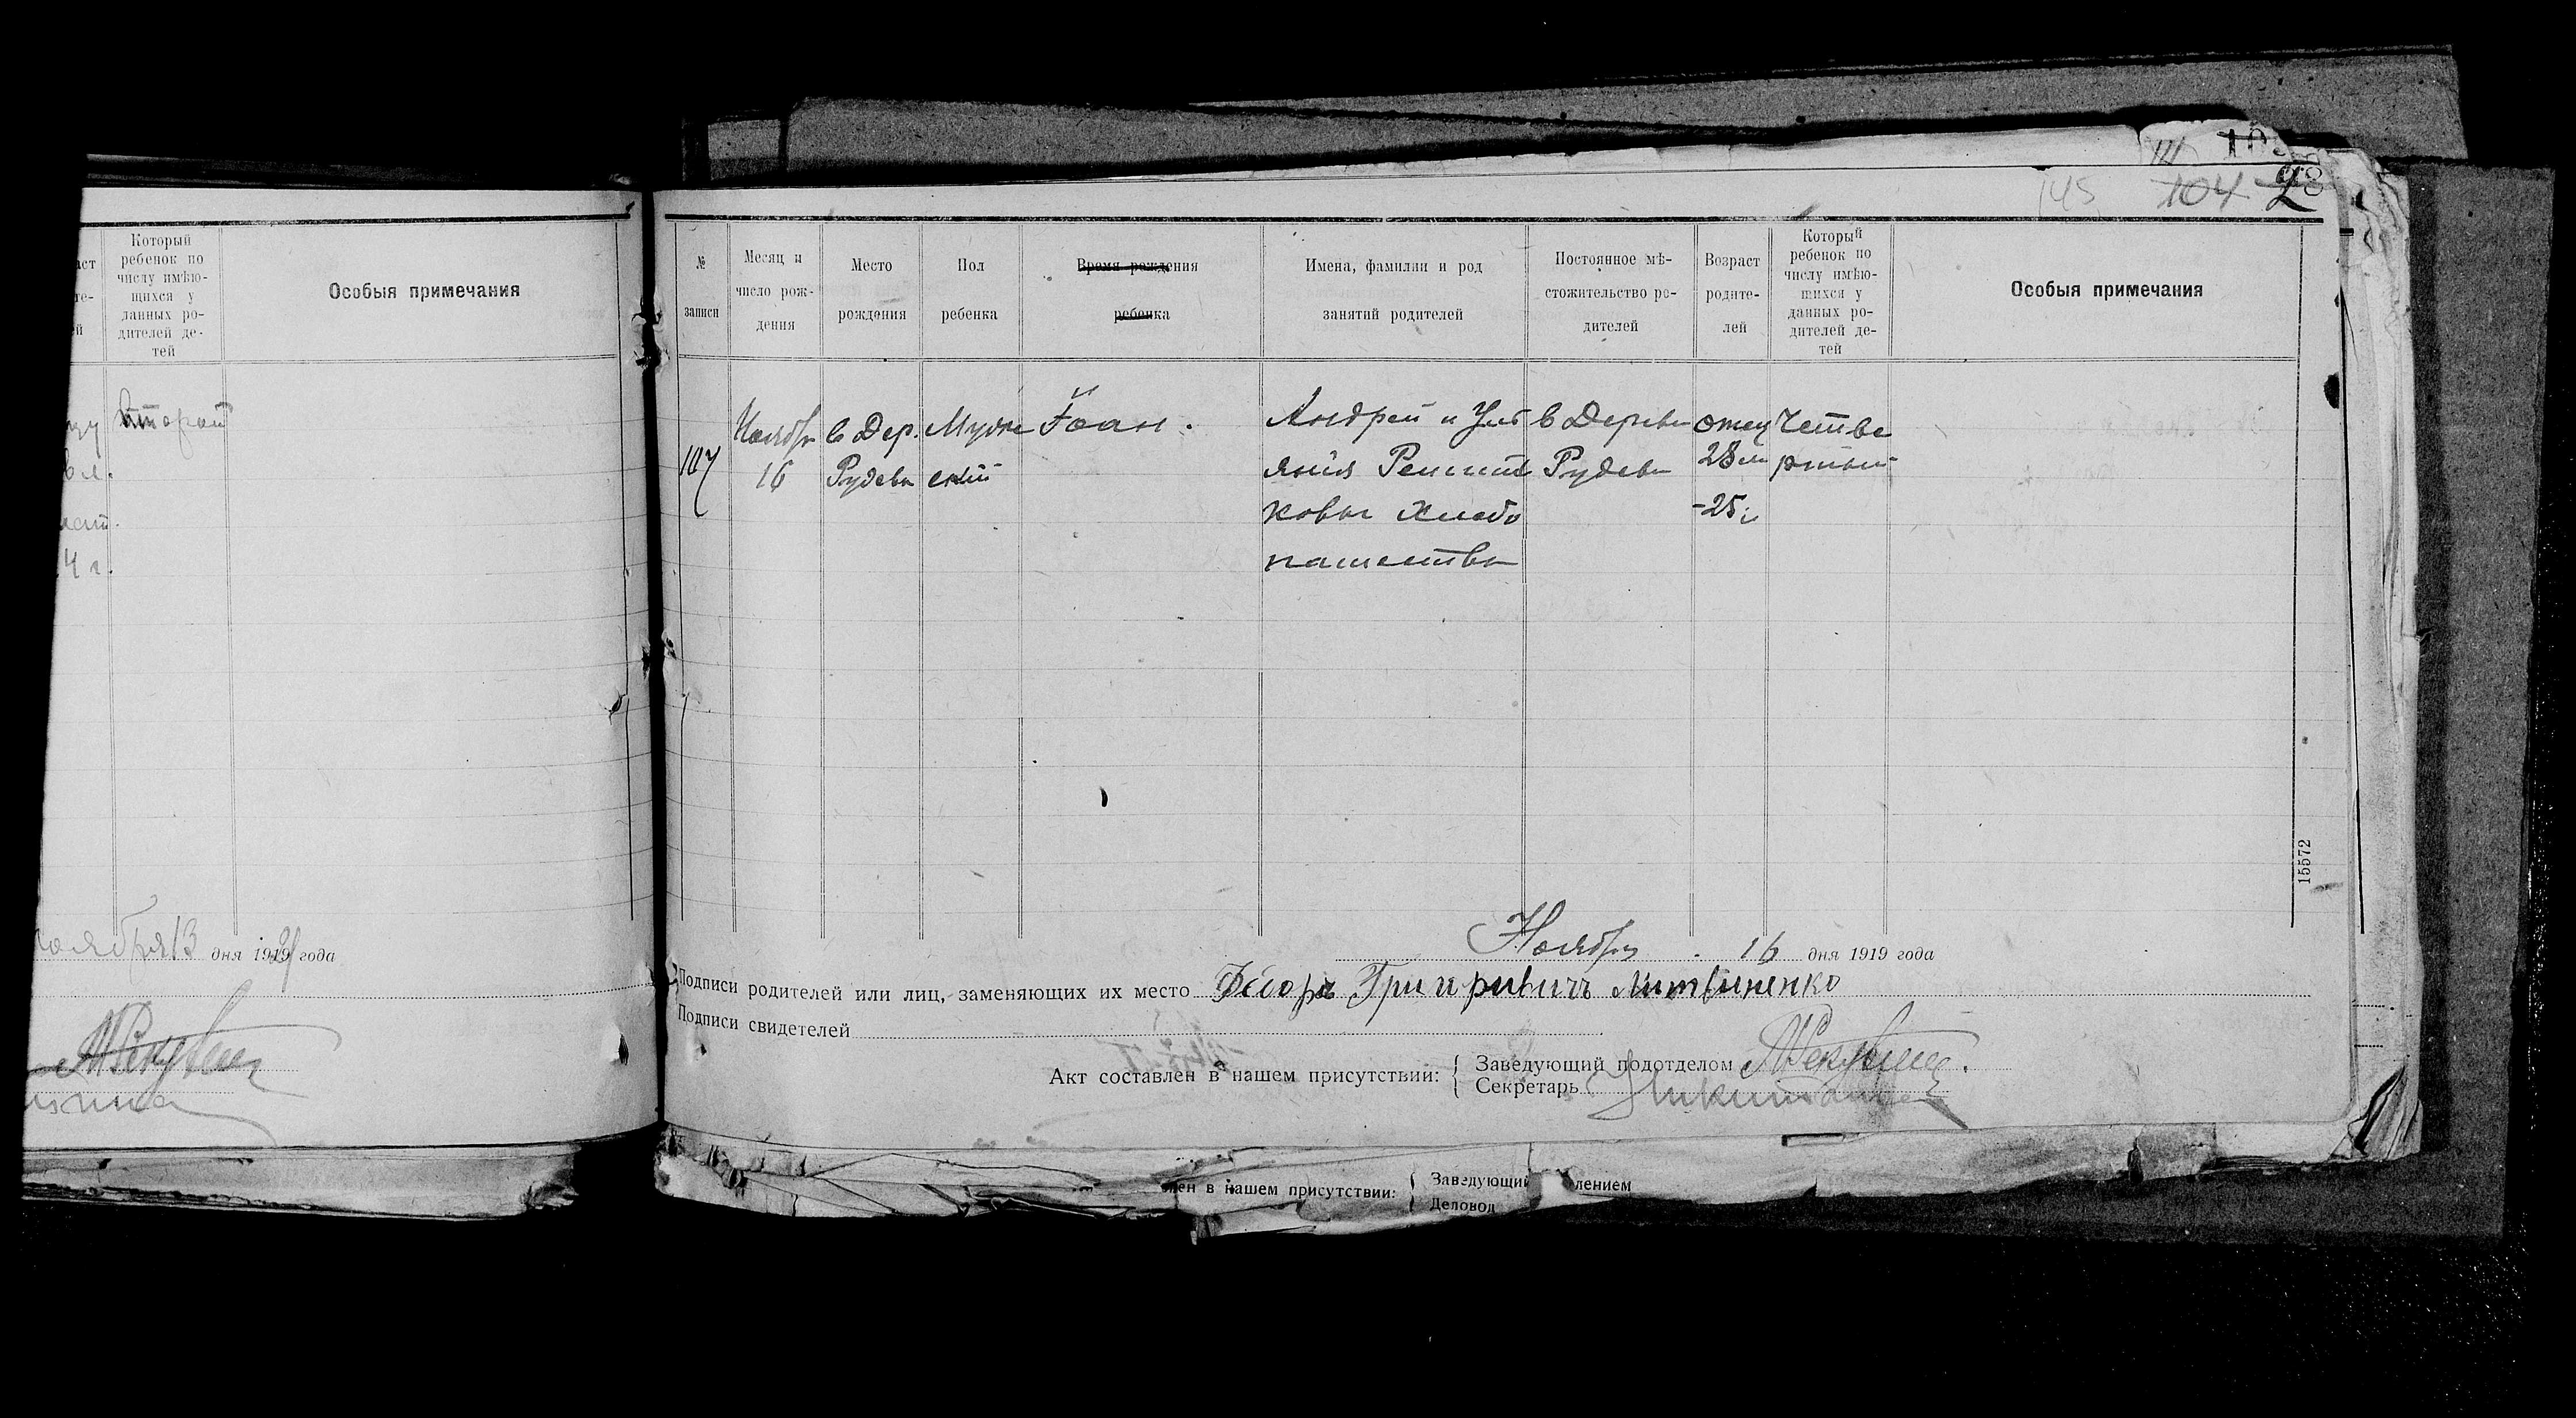 145 104
Который
ребенок по
числу имѣю-
щихся у
данных ро-
дителей де-
тей
Особыя примечания
второй
4 г.
ноября 13 дня 1919 года
№
записи
Месяц и
число рож-
дения
Место
рождения
Пол
ребенка
Время рождения
ребенка
Имена, фамилии и род
занятий родителей
Постоянное мѣ-
стожительство ро-
дителей
Возраст
родите-
лей
Который
ребенок по
числу имѣю-
щихся у
данных ро-
дителей де-
тей
Особыя примечания
107
Ноябр
16
в Дер.
Рудевк
Мужс
ский
Іоан.
Андрей и Уль
яния
ковы Хлебо
пашество
в Деревн
Рудевк
отец
28
-25
Четве
ртый
15572
Ноября 16 дня 1919 года
Подписи родителей или лиц, заменяющих их место Фёдоръ Григоривичъ Литвиненко
Подписи свидетелей
Акт составлен в нашем присутствии:
Заведующий подотделом
Секретарь
в нашем присутствии:
Заведующий лением
Деловод